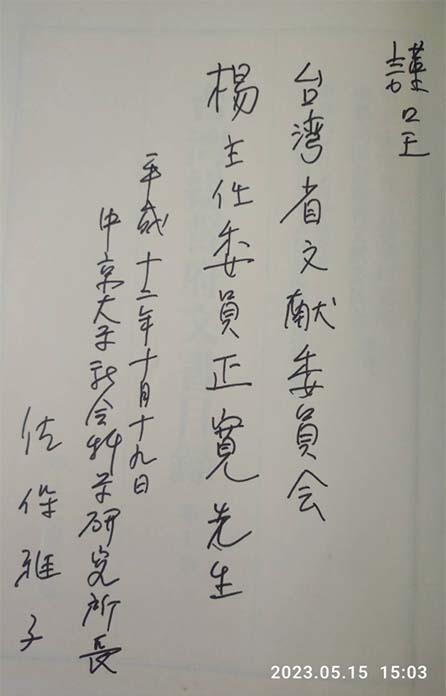 謹呈
台湾省文献委員会
楊主任委員正寛先生
平成十二年十月十九日
中京大学社会科学研究所長
佐保雅子
2023.05.15 15:03